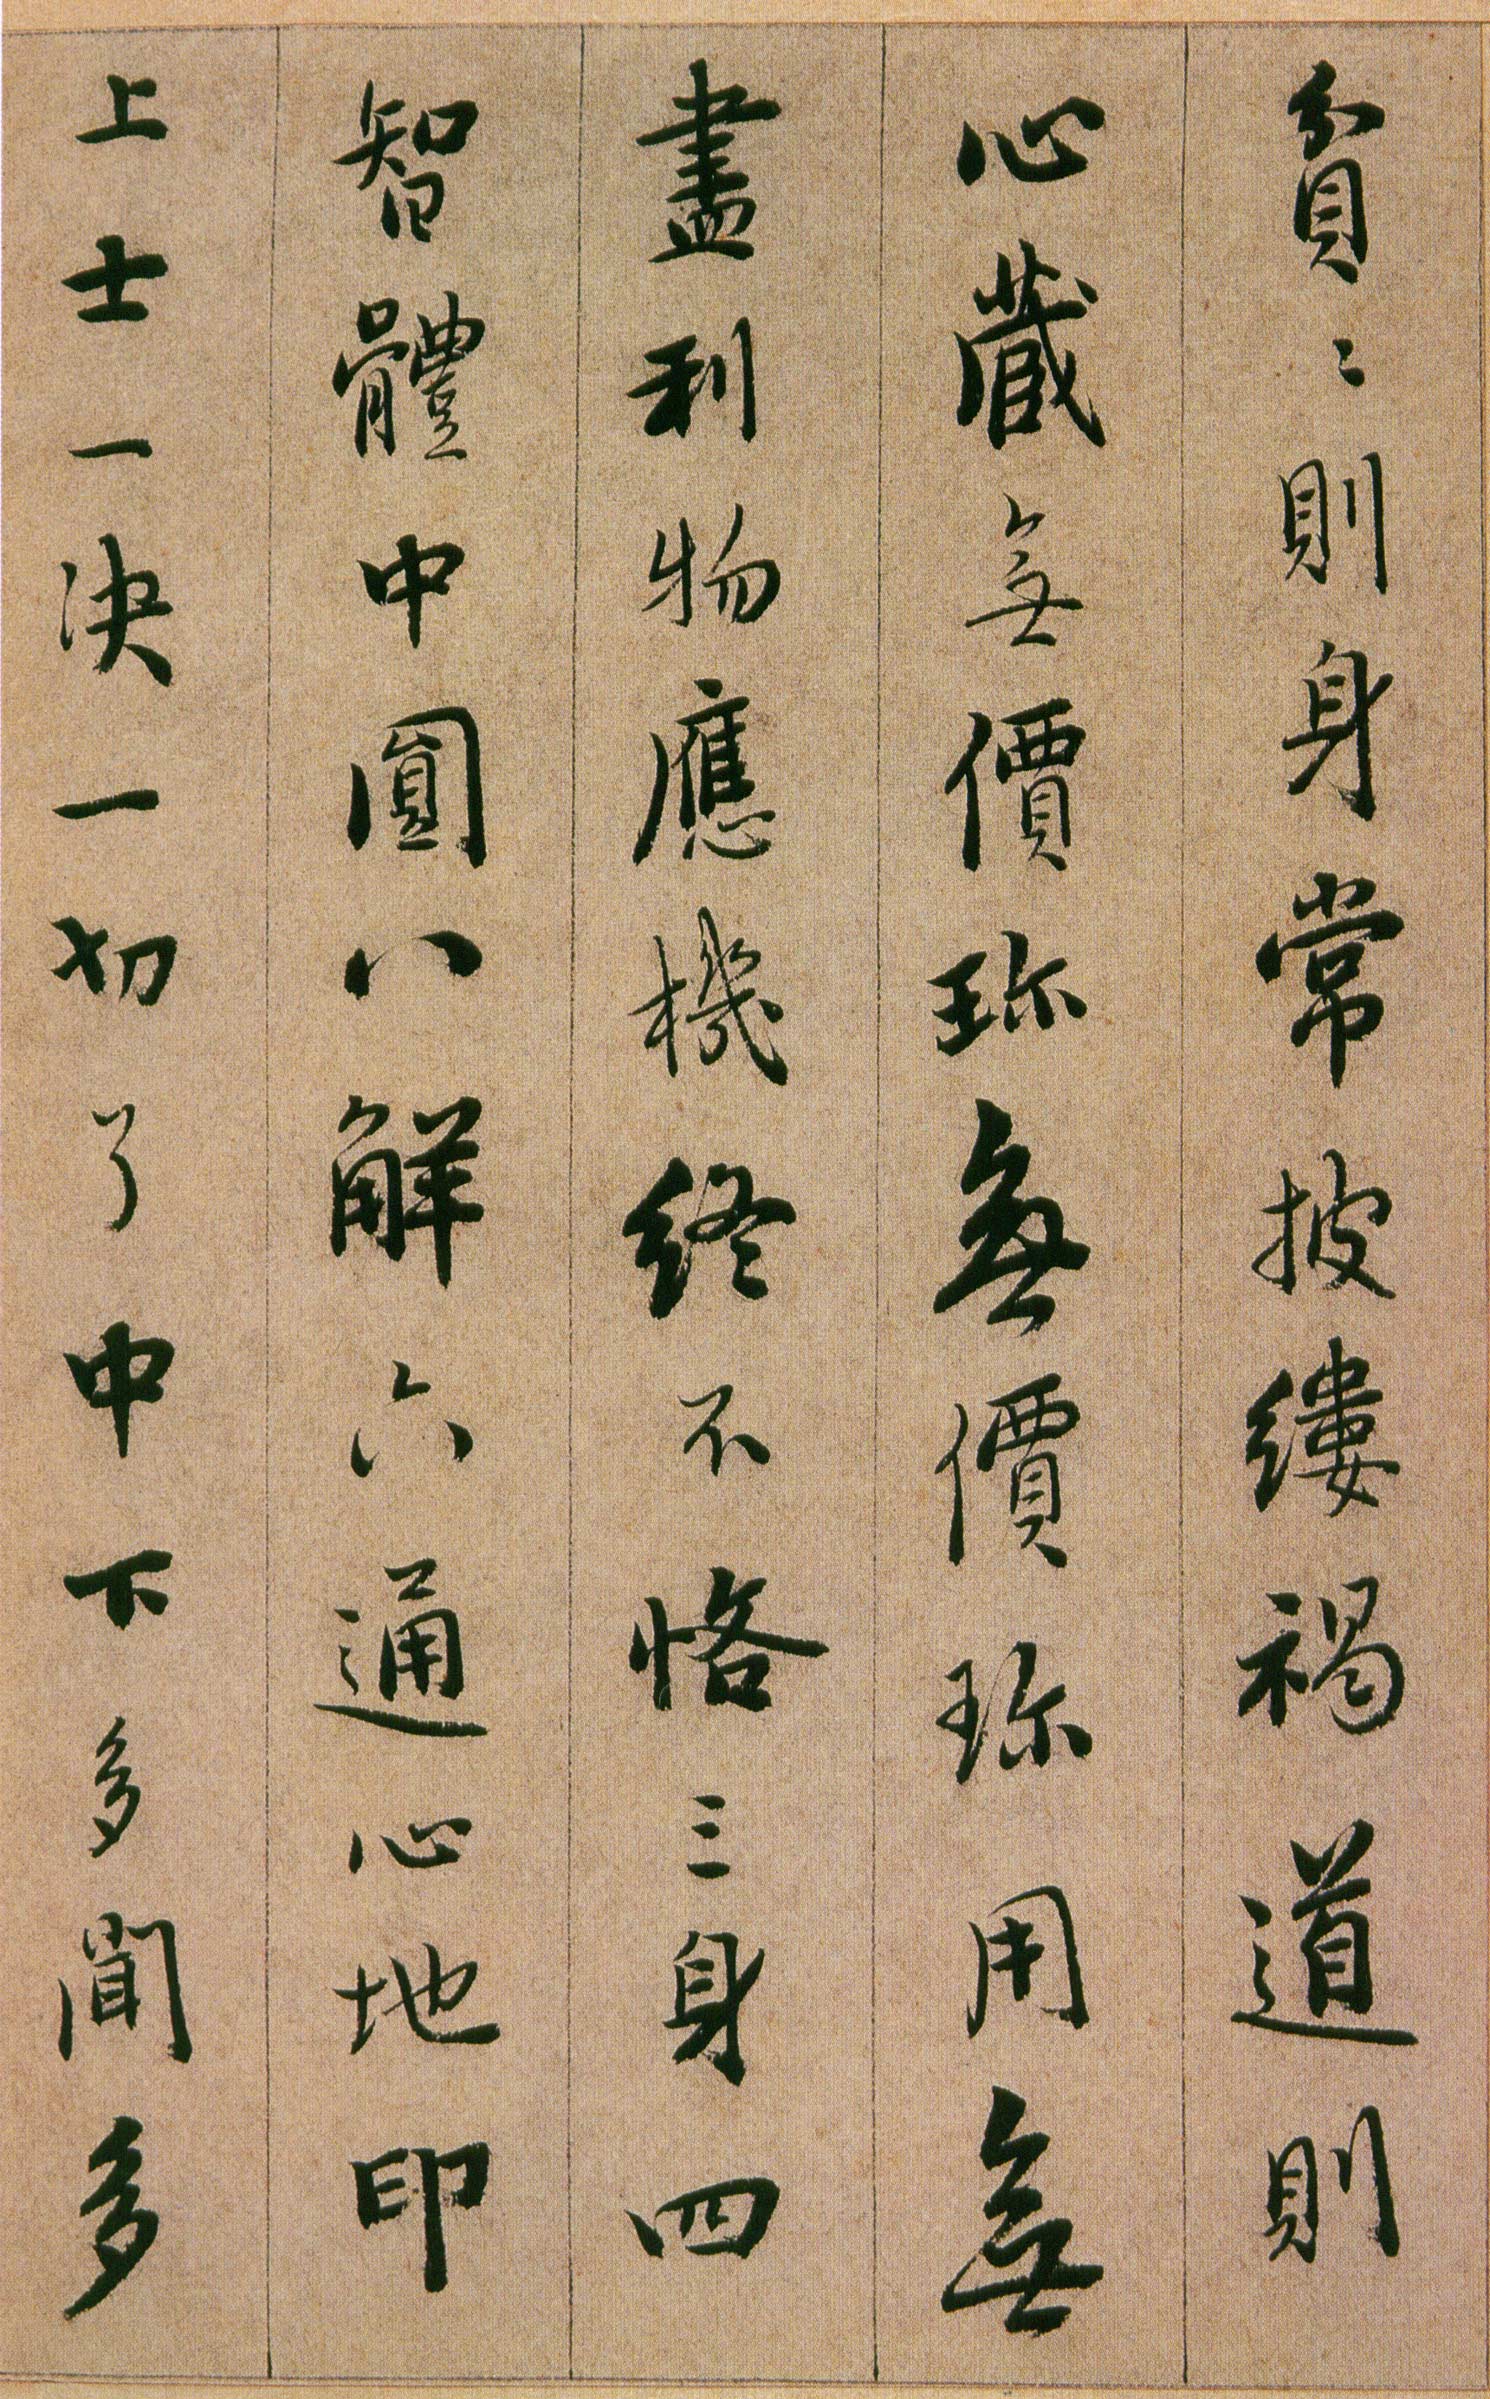 貧〻則身常披縷褐道則
心藏無價珎無價珎用無
盡利物應機終不悋三身四
智體中圓八解六通心地印
上士一決一切了中下多聞多